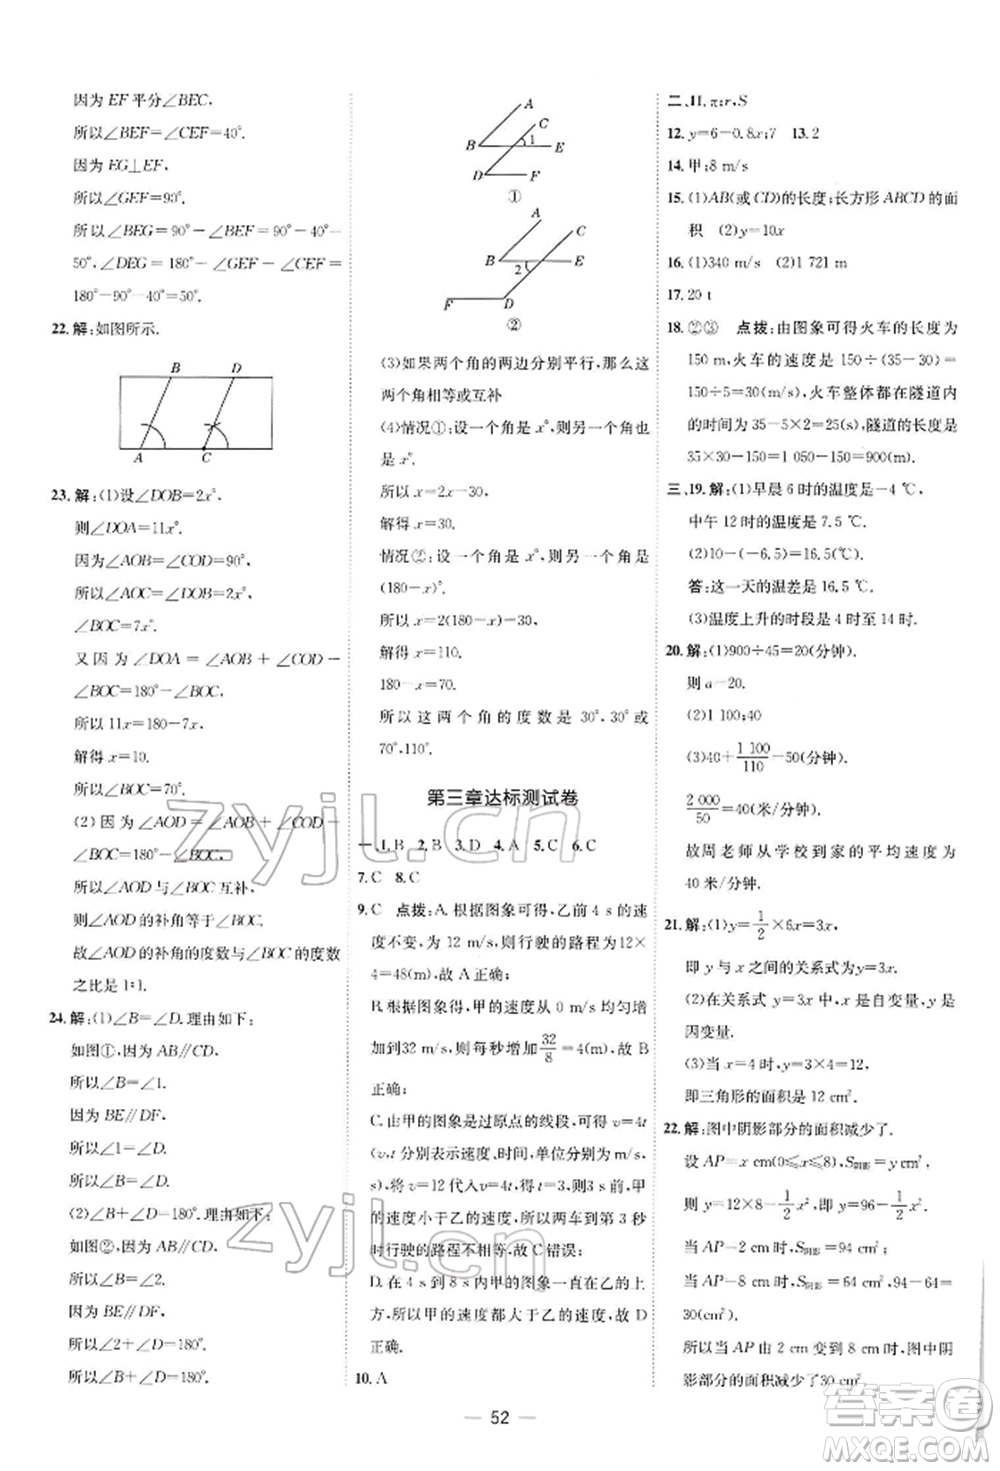 因为EF平分∠BEC,
所以∠BEF=∠CEF=40°.
因为EG⊥EF,
所以∠GEF=90°.
所以∠BEG=90°-∠BEF=90°-40°=
50°,∠DEG=180°-∠GEF-∠CEF=
180°-90°-40°=50°.
22.解:如图所示.
B D
A C
23.解:(1)设∠DOB=2x°,
则∠DOA=11x°.
因为∠AOB=∠COD=90°,
所以∠AOC=∠DOB=2x°,
∠BOC=7x°.
又因为∠DOA=∠AOB+∠COD-
∠BOC=180°-∠BOC,
所以11x=180-7x,
解得x=10.
所以∠BOC=70°.
(2)因为∠AOD=∠AOB+∠COD-
∠BOC=180°-∠BOC,
所以∠AOD与∠BOC互补,
则∠AOD的补角等于∠BOC.
故∠AOD的补角的度数与∠BOC的度数
之比是1∶1.
24.解:(1)∠B=∠D.理由如下:
如图①,因为AB∥CD,
所以∠B=∠1.
因为BE∥DF,
所以∠1=∠D.
所以∠B=∠D.
(2)∠B+∠D=180°.理由如下:
如图②,因为AB∥CD,
所以∠B=∠2.
因为BE∥DF,
所以∠2+∠D=180°.
所以∠B+∠D=180°.
A
C
B 1 E
D F
①
A
C
B E
2
F D
②
(3)如果两个角的两边分别平行,那么这
两个角相等或互补
(4)情况①:设一个角是x°,则另一个角也
是x°.
所以x=2x-30,
解得x=30.
情况②:设一个角是x°,则另一个角是
(180-x)°.
所以x=2(180-x)-30,
解得x=110.
180-x=70.
所以这两个角的度数是30°,30°或
70°,110°.
第三章达标测试卷
一、1.B 2.B 3.D 4.A 5.C 6.C
7.C 8.C
9.C 点拨:A.根据图象可得,乙前4 s的速
度不变,为12 m/s,则行驶的路程为12×
4=48(m),故A正确;
B.根据图象得,甲的速度从0 m/s均匀增
加到32 m/s,则每秒增加32/8=4(m),故B
正确;
C.由甲的图象是过原点的线段,可得v=4t
(v,t分别表示速度、时间),将v=12代入v=4t
得t=3 s,则3 s前,甲
的速度小于乙的速度,所以两车到第3秒
时行驶的路程不相等,故C错误;
D.在4 s到8 s内甲的图象一直在乙的上
方,所以甲的速度都大于乙的速度,故D
正确.
10.A
二、11.π;r,S
12.y=6-0.8x;7 13.2
14.甲;8 m/s
15.(1)AB(或CD)的长度;长方形ABCD的面
积 (2)y=10x
16.(1)340 m/s (2)1 721 m
17.20 t
18.②③ 点拨:由图象可得火车的长度为
150 m,火车的速度是150÷(35-30)=
150÷5=30(m/s),火车整体都在隧道内
的时间为35-5×2=25(s),隧道的长度是
35×30-150=1 050-150=900(m).
三、19.解:(1)早晨6时的温度是-4 ℃,
中午12时的温度是7.5 ℃.
(2)10-(-6.5)=16.5(℃).
答:这一天的温差是16.5 ℃.
(3)温度上升的时段是4时至14时.
20.解:(1)900÷45=20(分钟).
则a=20.
(2)1 100;40
(3)40+1 100/110-50(分钟).
2 000/50=40(米/分钟).
故周老师从学校到家的平均速度为
40米/分钟.
21.解:(1)y=1/2×6x=3x,
即y与x之间的关系式为y=3x.
(2)在关系式y=3x中,x是自变量,y是
因变量.
(3)当x=4时,y=3×4=12,
即三角形的面积是12 cm².
22.解:图中阴影部分的面积减少了.
设AP=x cm(0≤x≤8),S阴影=y cm²,
则y=12×8-1/2x²,即y=96-1/2x².
当AP=2 cm时,S阴影=94 cm²,
当AP=8 cm时,S阴影=64 cm²,94-64=
30(cm²).
所以当AP由2 cm变到8 cm时,图中阴
影部分的面积减少了30 cm².
52
zyjl.cn
zyjl.cn
答案圈
MXQE.COM